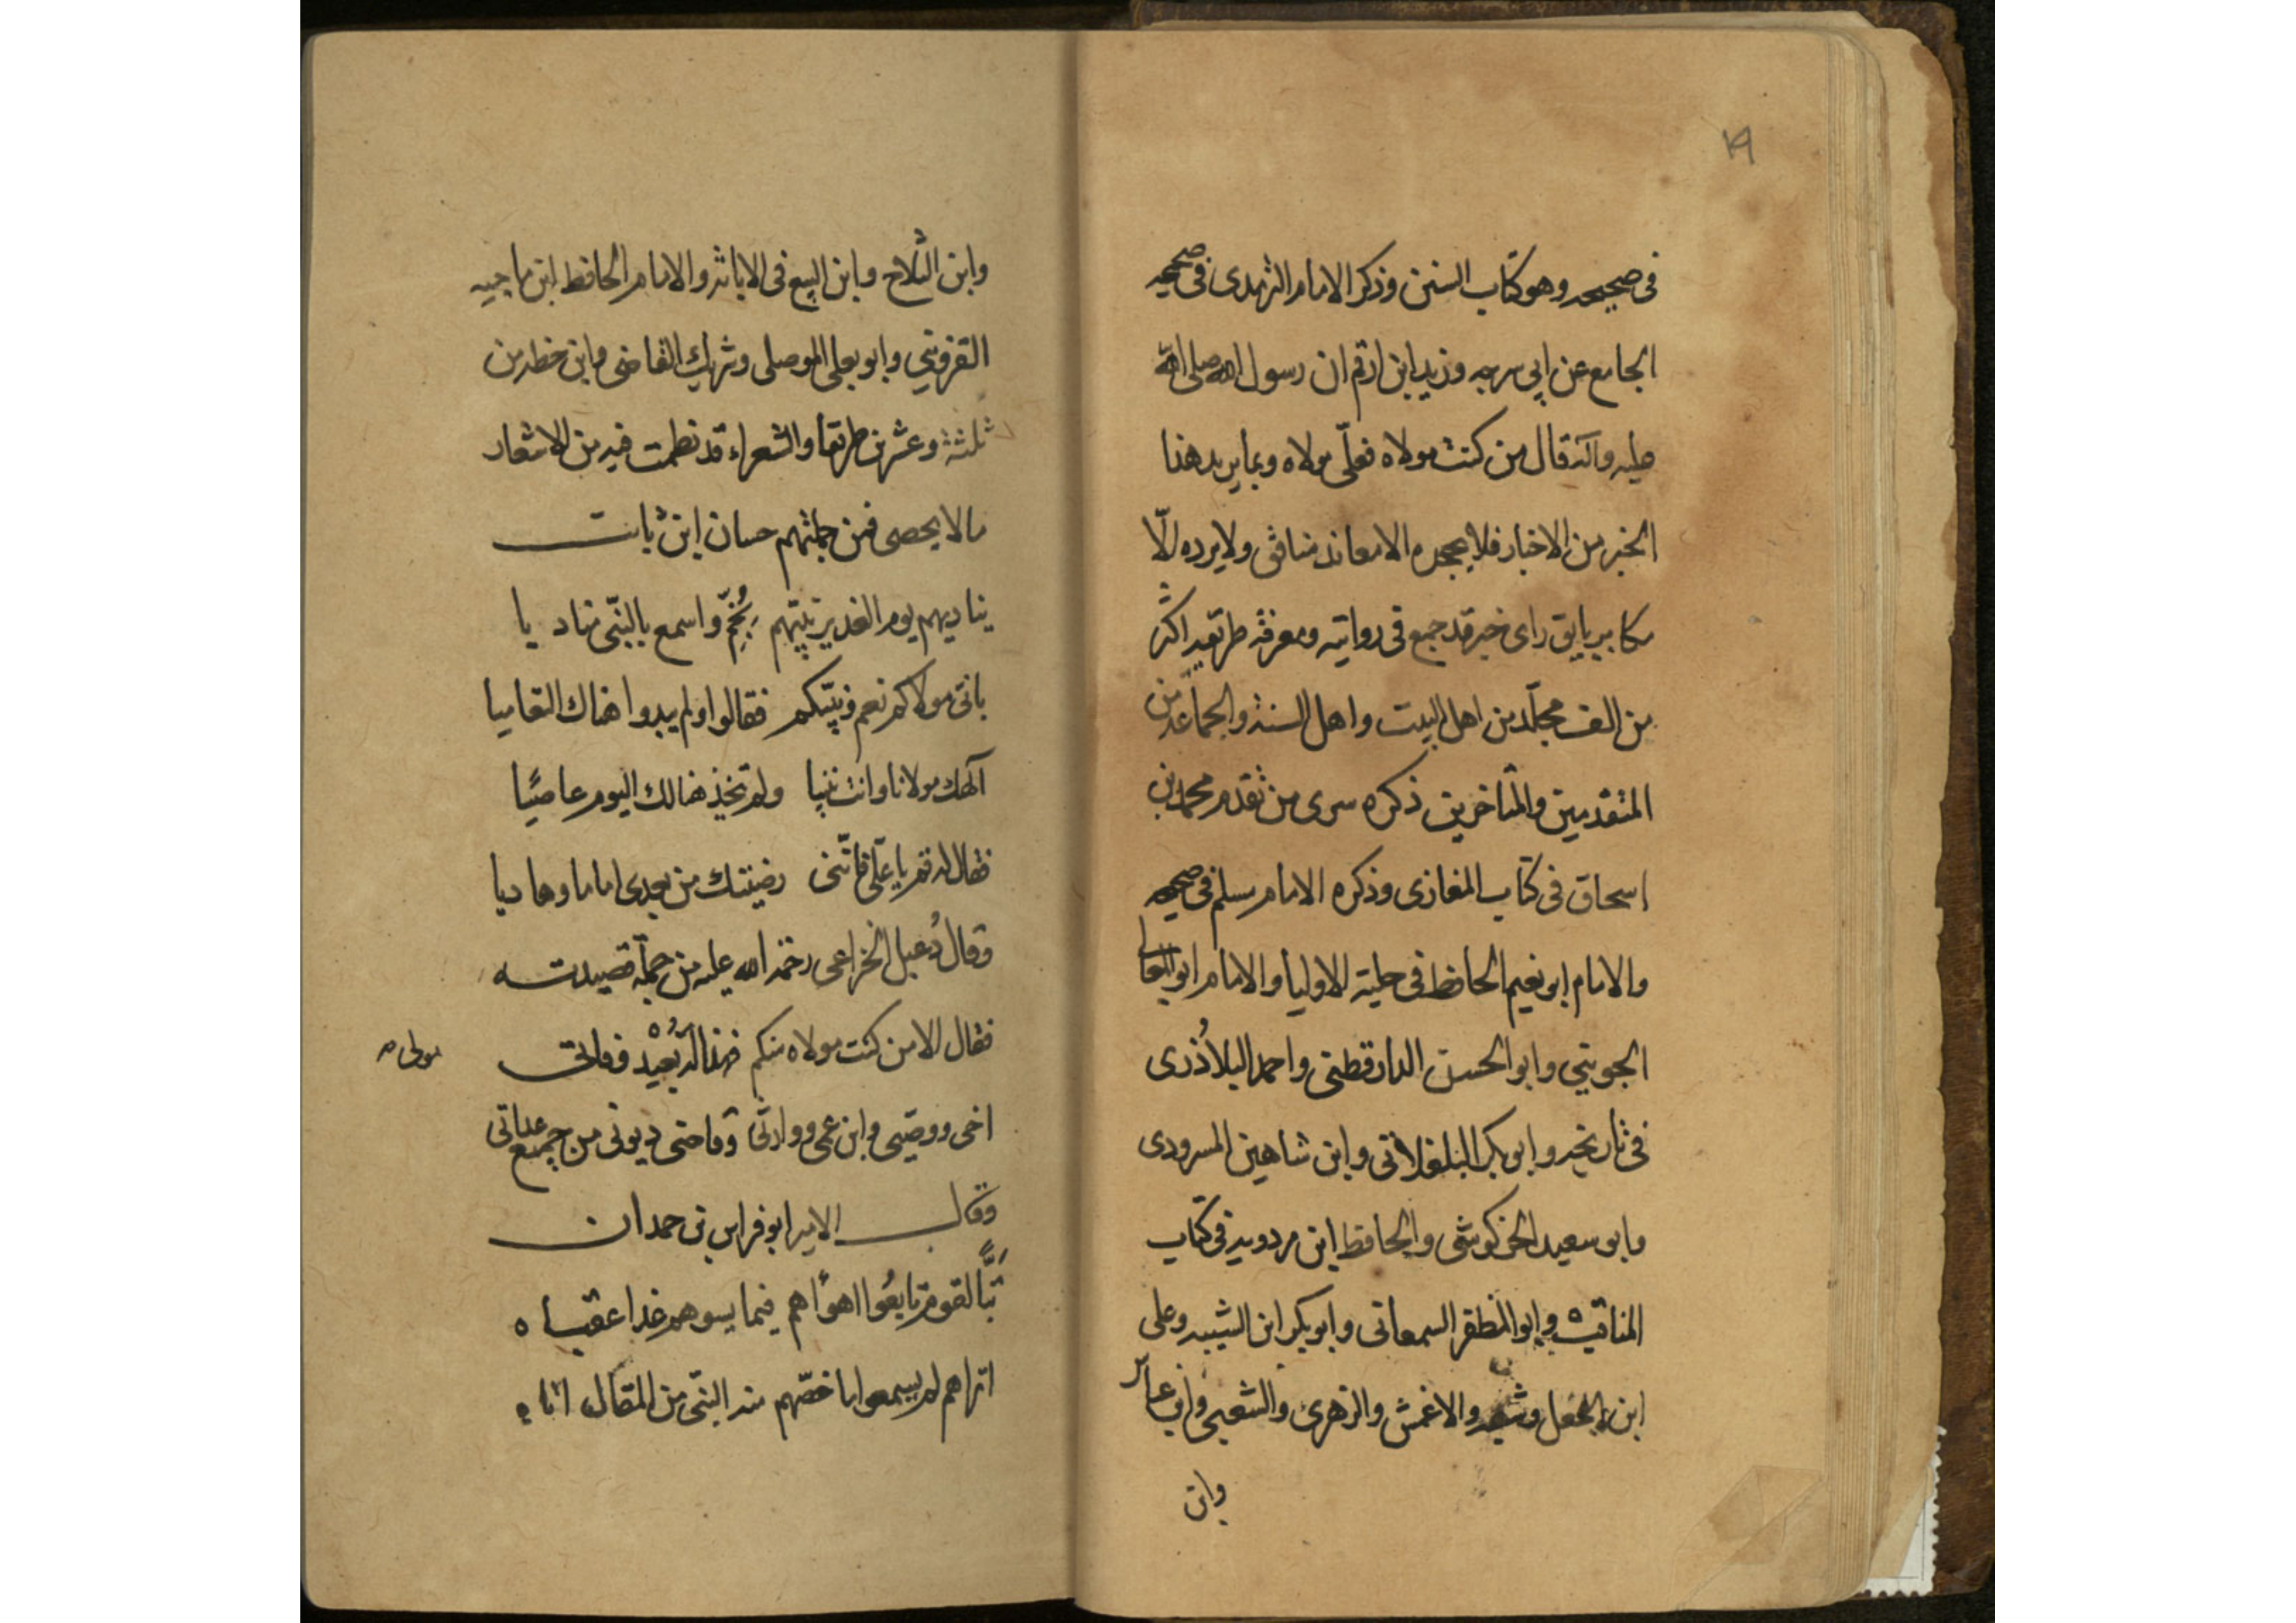 ١٩
فى صحيحه وهو كتاب السنن وذكر الامام الترمدى فى صحيحه
الجامع عن ابي سريحه وزيد ابن ارقم ان رسول الله صلى الله
عليه وآله قال من كنت مولاه فعلّى مولاه وبما يريد هذا
الخبر من الاخبار فلا يجحده الا معاند منافق ولا يرده الّا
مكابر باىق راى خبر قد جمع فى رواتيه ومعرفة طريقه اكثر
من الف مجلّد من اهل البيت واهل السنة والجماعة من
المتقدمين والمتأخرين ذكره سرى من تقدم محمد بن
اسحاق فى كتاب المغازى وذكره الامام مسلم فى صحيحه
والامام ابو نعيم الحافظ فى حلية الاوليا والامام ابو المعالى
الجوينى وابو الحسن الدارقطنى واحمد البلاذُرى
فى تاريخه وابو بكر البلغلانى وابن شاهين المسرودى
وابو سعيد الخركوشى والحافظ ابن مردويه فى كتاب
المناقب وابو المظفر السمعانى وابو بكر ابن الشيبه وعلى
ابن الجعل وشعبه والاعمش والزهرى والشعبى وابو عامر
وابن
وابن الثلاج وابن البيع فى الابانه والامام الحافظ ابن ماجيه
القزوينى وابو يعلى الموصلى وشريك القاضى وابن خطر من
ثلثة وعشرين طريقا والشعراء قد نظمت فيه من الاشعار
مالا يحصى فمن جملتهم حسان ابن ثابت
يناديهم يوم الغدير نبيّهم بخُمّ واسمع بالنبّى مناديا
بانّى مولاكم نعم ونبيّكم فقالوا ولم يبدوا هناك التعاميا
آلهك مولانا وانت نبيا ولم تجذ هنالك اليوم عاصيًا
فقال له قم يا علّى فانّنى رضيتك من بعدى اماما وهاديا
وقال دُعبل الخزاعى رحمة الله عليه من جملة قصيدته
فقال الا من كنت مولاه منكم فهذا له بُعيْد وفاتى
مولى صه
اخى ووصيّى وابن عمى ووارثى وقاضى ديونى من جميع عداتى
وقال الامير ابو فراس بن حمدان
تَبًّا لقوم تابعُوا اهوآهم فيما يسوهم غدا عقباه
اتراهم لم يسمعوا ما خصّهم منه النبىّ من المقال اتاه